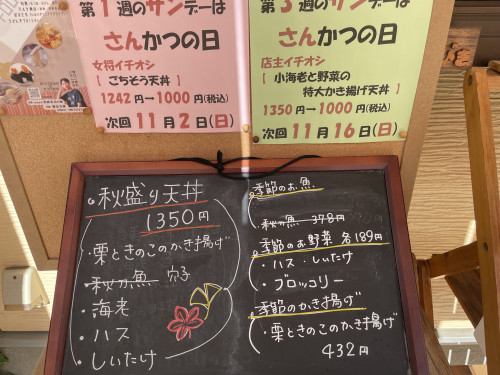 第1週のサンデーは
さんかつの日
女将イチオシ
[ごちそう天丼]
1242円→1000円(税込)
次回11月2日(日)
第3週のサンデーは
さんかつの日
店主イチオシ
[小海老と野菜の
特大かき揚げ天丼]
1350円→1000円(税込)
次回11月16日(日)
秋盛り天丼
1350円
・栗ときのこのかき揚げ
・秋刀魚 穴子
・海老
・ハス
・しいたけ
季節のお魚
秋刀魚 378円
季節のお野菜 各189円
・ハス・しいたけ
・ブロッコリー
季節のかき揚げ
・栗ときのこのかき揚げ
432円